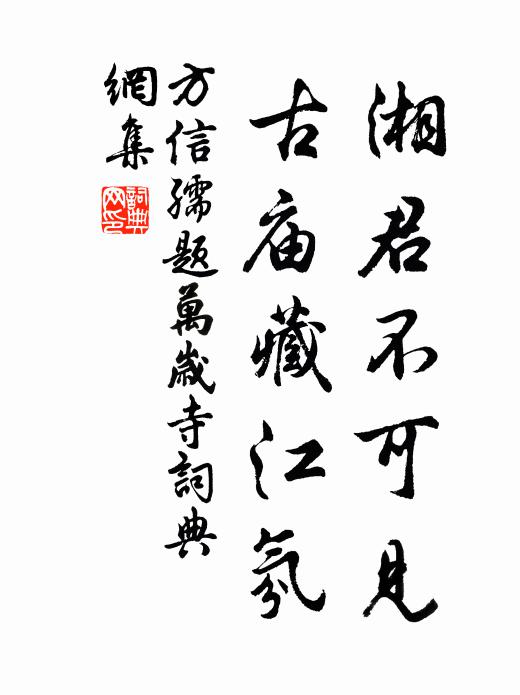 湘君不可見
古庙藏江氛
方信孺題萬歲寺詞典
網集
詞典网印